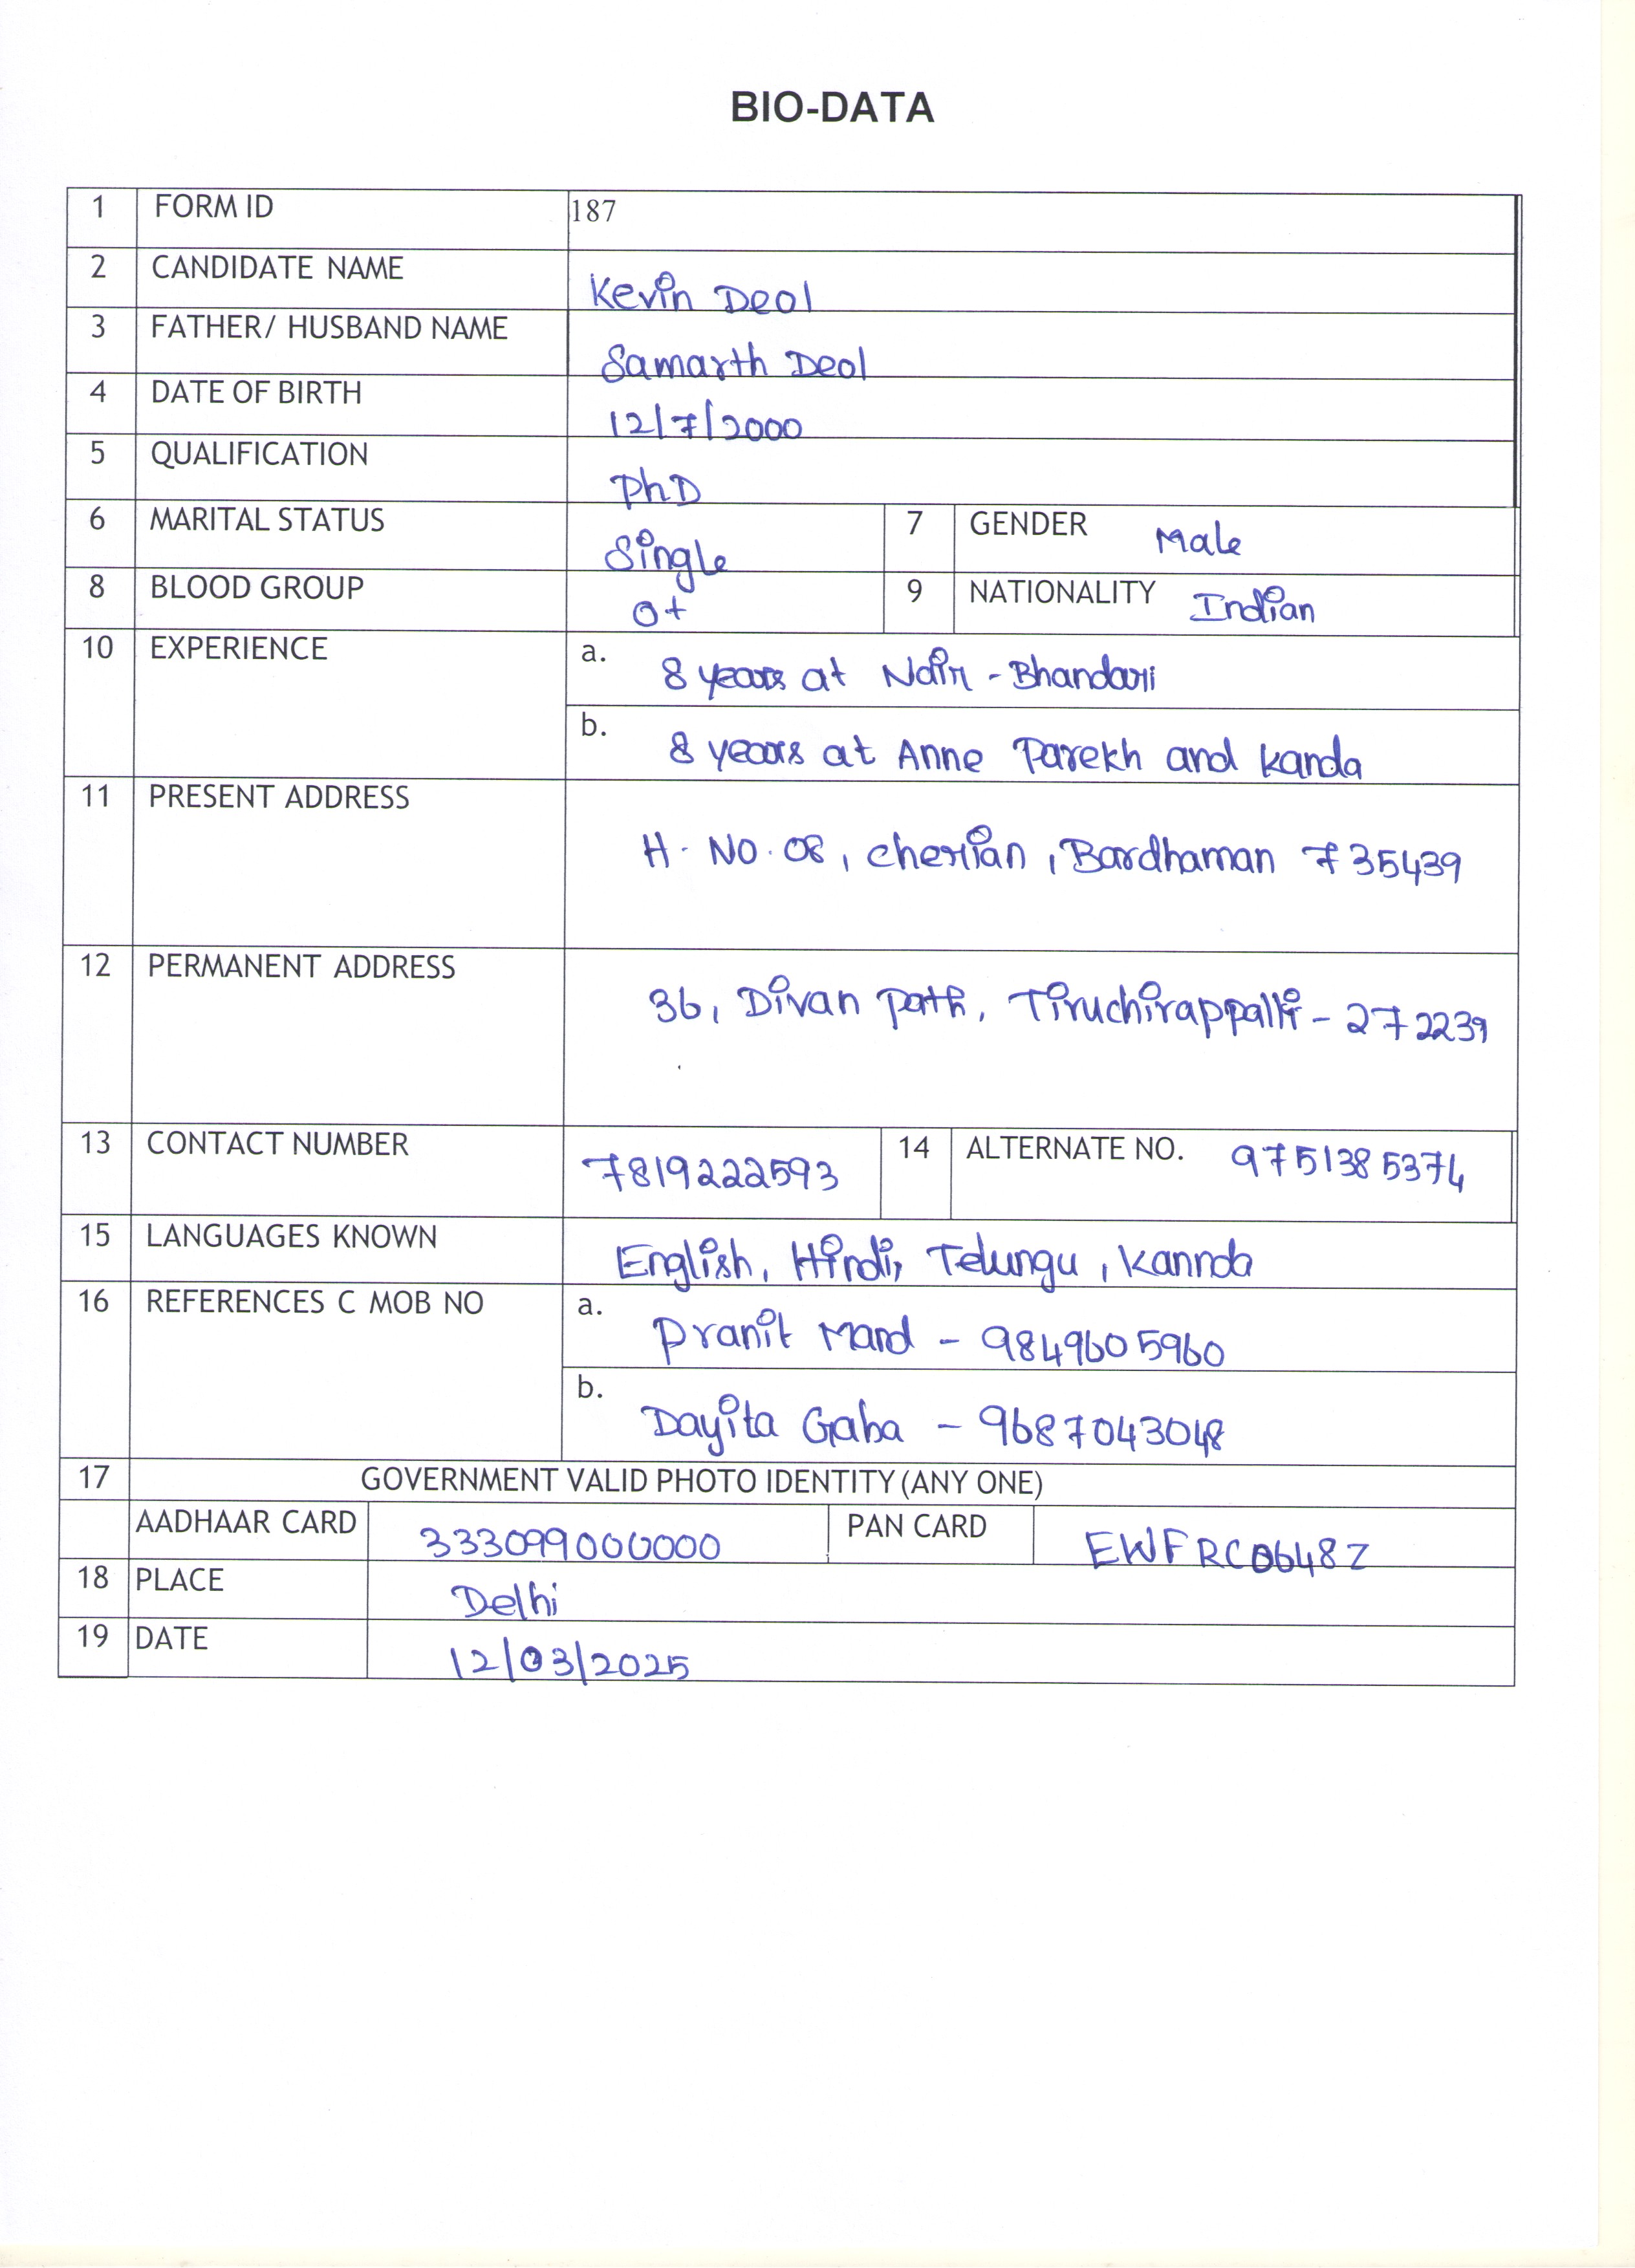 BIO-DATA
1 FORM ID 187
2 CANDIDATE NAME Kevin Deol
3 FATHER/ HUSBAND NAME Samarth Deol
4 DATE OF BIRTH 12/7/2000
5 QUALIFICATION PhD
6 MARITAL STATUS Single 7 GENDER Male
8 BLOOD GROUP O+ 9 NATIONALITY Indian
10 EXPERIENCE a. 8 years at Nair - Bhandari
b. 8 years at Anne Parekh and Kanda
11 PRESENT ADDRESS H. No. 08, cherian, Bardhaman 735439
12 PERMANENT ADDRESS 36, Divan path, Tiruchirappalli - 272239
13 CONTACT NUMBER 7819222593 14 ALTERNATE NO. 9751385374
15 LANGUAGES KNOWN English, Hindi, Telungu, Kannda
16 REFERENCES C MOB NO a. Pranit Mand - 9849605960
b. Dayita Gaba - 9687043048
17 GOVERNMENT VALID PHOTO IDENTITY (ANY ONE)
AADHAAR CARD 333099000000 PAN CARD EWFRC0648Z
18 PLACE Delhi
19 DATE 12/03/2025